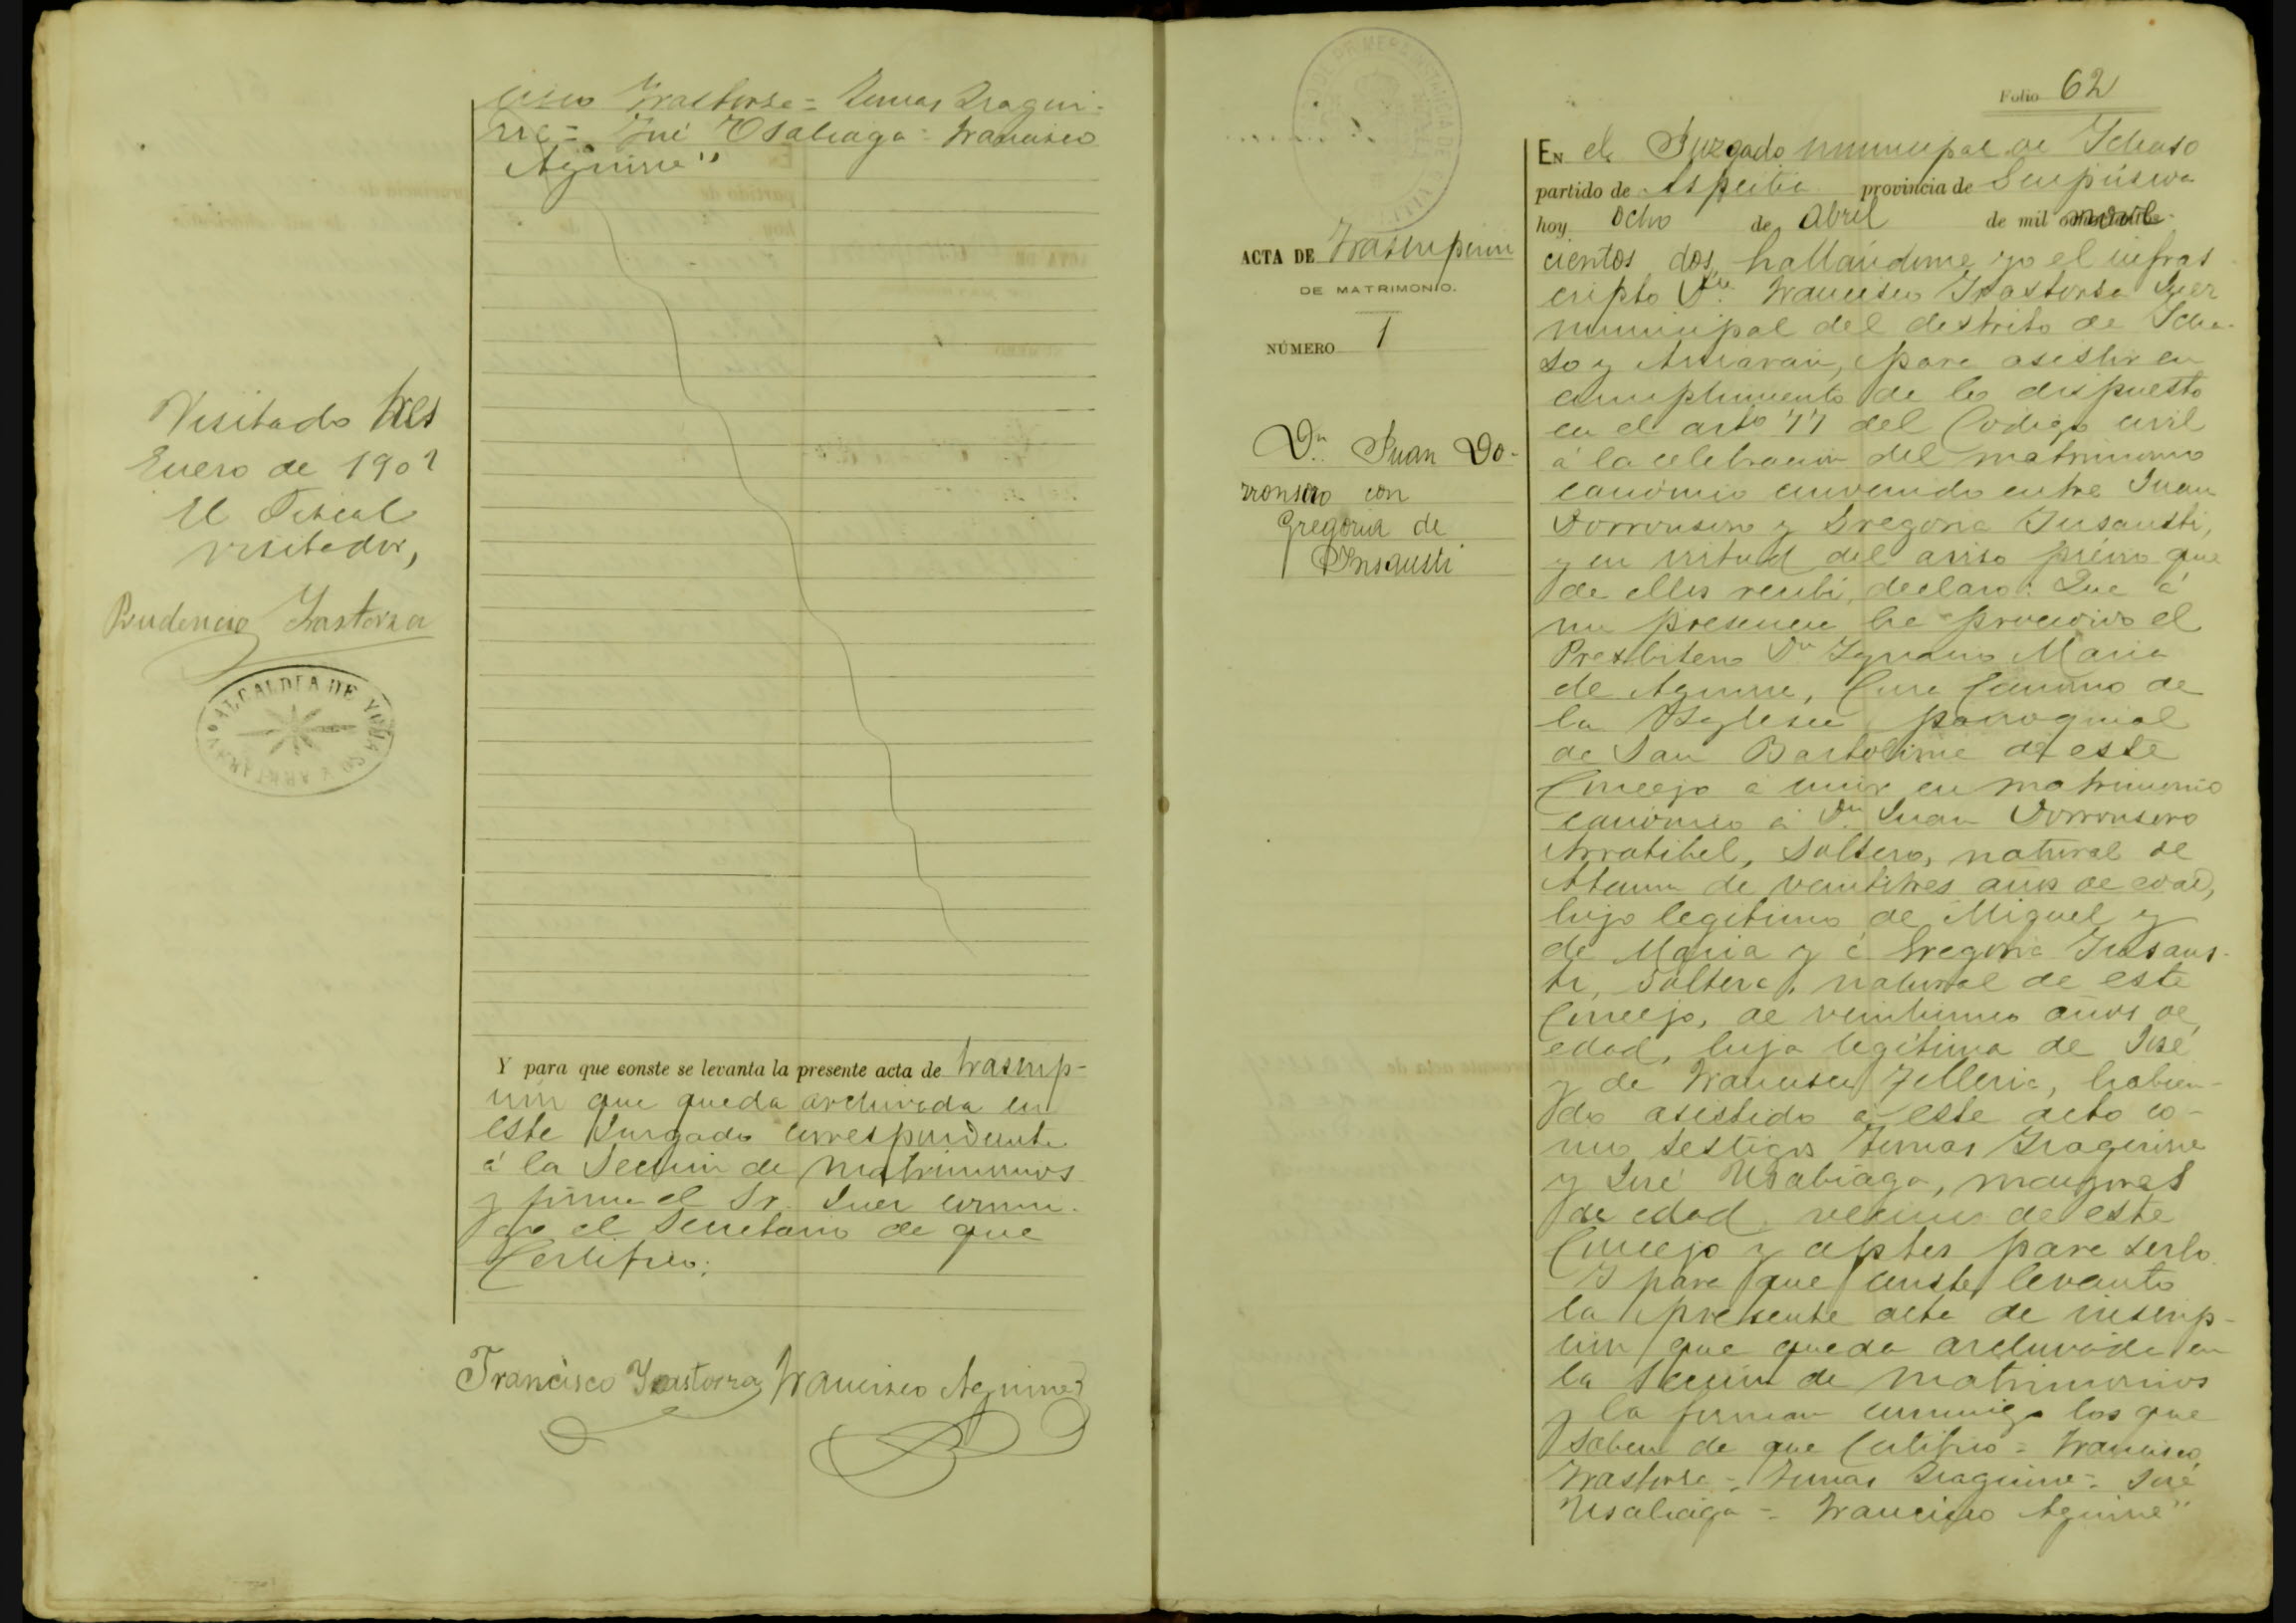 cisco Yrastorza = Tomas Yragui-
rre = José Usabiaga = Francisco
Aguirre"
Visitado tres
Enero de 1902
El Fiscal
visitador,
Prudencio Yrastorza
ALCALDIA DE YCHASO Y ARRIARAN
Y para que conste se levanta la presente acta de trascrip-
ción que queda archivada en
este Juzgado correspondiente
á la Sección de Matrimonios
y firma el Sr. Juez conmi-
go el Secretario de que
Certifico:
Francisco Yrastorza Francisco Aguirre
Folio 62
ACTA DE Trascripción
DE MATRIMONIO.
NÚMERO 1
Dn. Juan Do-
rronsoro con
Gregoria de
Ynsausti
EN el Juzgado municipal de Ychaso
partido de Azpeitia provincia de Guipúzcoa
hoy ocho de Abril de mil nove-
cientos dos, hallándome yo el infras
cripto Dn. Francisco Yrastorza Juez
municipal del distrito de Icha-
so y Arriaran, para asistir en
cumplimiento de lo dispuesto
en el arto 77 del Codigo civil
á la celebracion del matrimonio
canónico convenido entre Juan
Dorronsoro y Gregoria Ynsausti,
y en virtud del aviso prévio que
de ellos recibí, declaro: Que á
mi presencia ha procedido el
Presbitero Dn Ygnacio Maria
de Aguirre, Cura Ecónomo de
la Yglesia parroquial
de San Bartolomé de este
Concejo á unir en matrimonio
canónico á Dn Juan Dorronsoro
Arratibel, Soltero, natural de
Ataun de veintitres años de edad,
hijo legítimo de Miguel y
de Maria y á Gregoria Ynsaus-
ti, Soltera, natural de este
Concejo, de veinticinco años de
edad, hija legítima de José
y de Francisca Telleria, habien-
do asistido á este acto co-
mo testigos Tomas Yraguirre
y José Usabiaga, mayores
de edad, vecinos de este
Concejo y aptos para serlo.
Y para que conste levanto
la presente acta de inscrip-
ción que queda archivada en
la Sección de matrimonios
y la firman conmigo los que
saben de que Certifico = Francisco
Yrastorza = Tomas Yraguirre = José
Usabiaga = Francisco Aguirre"